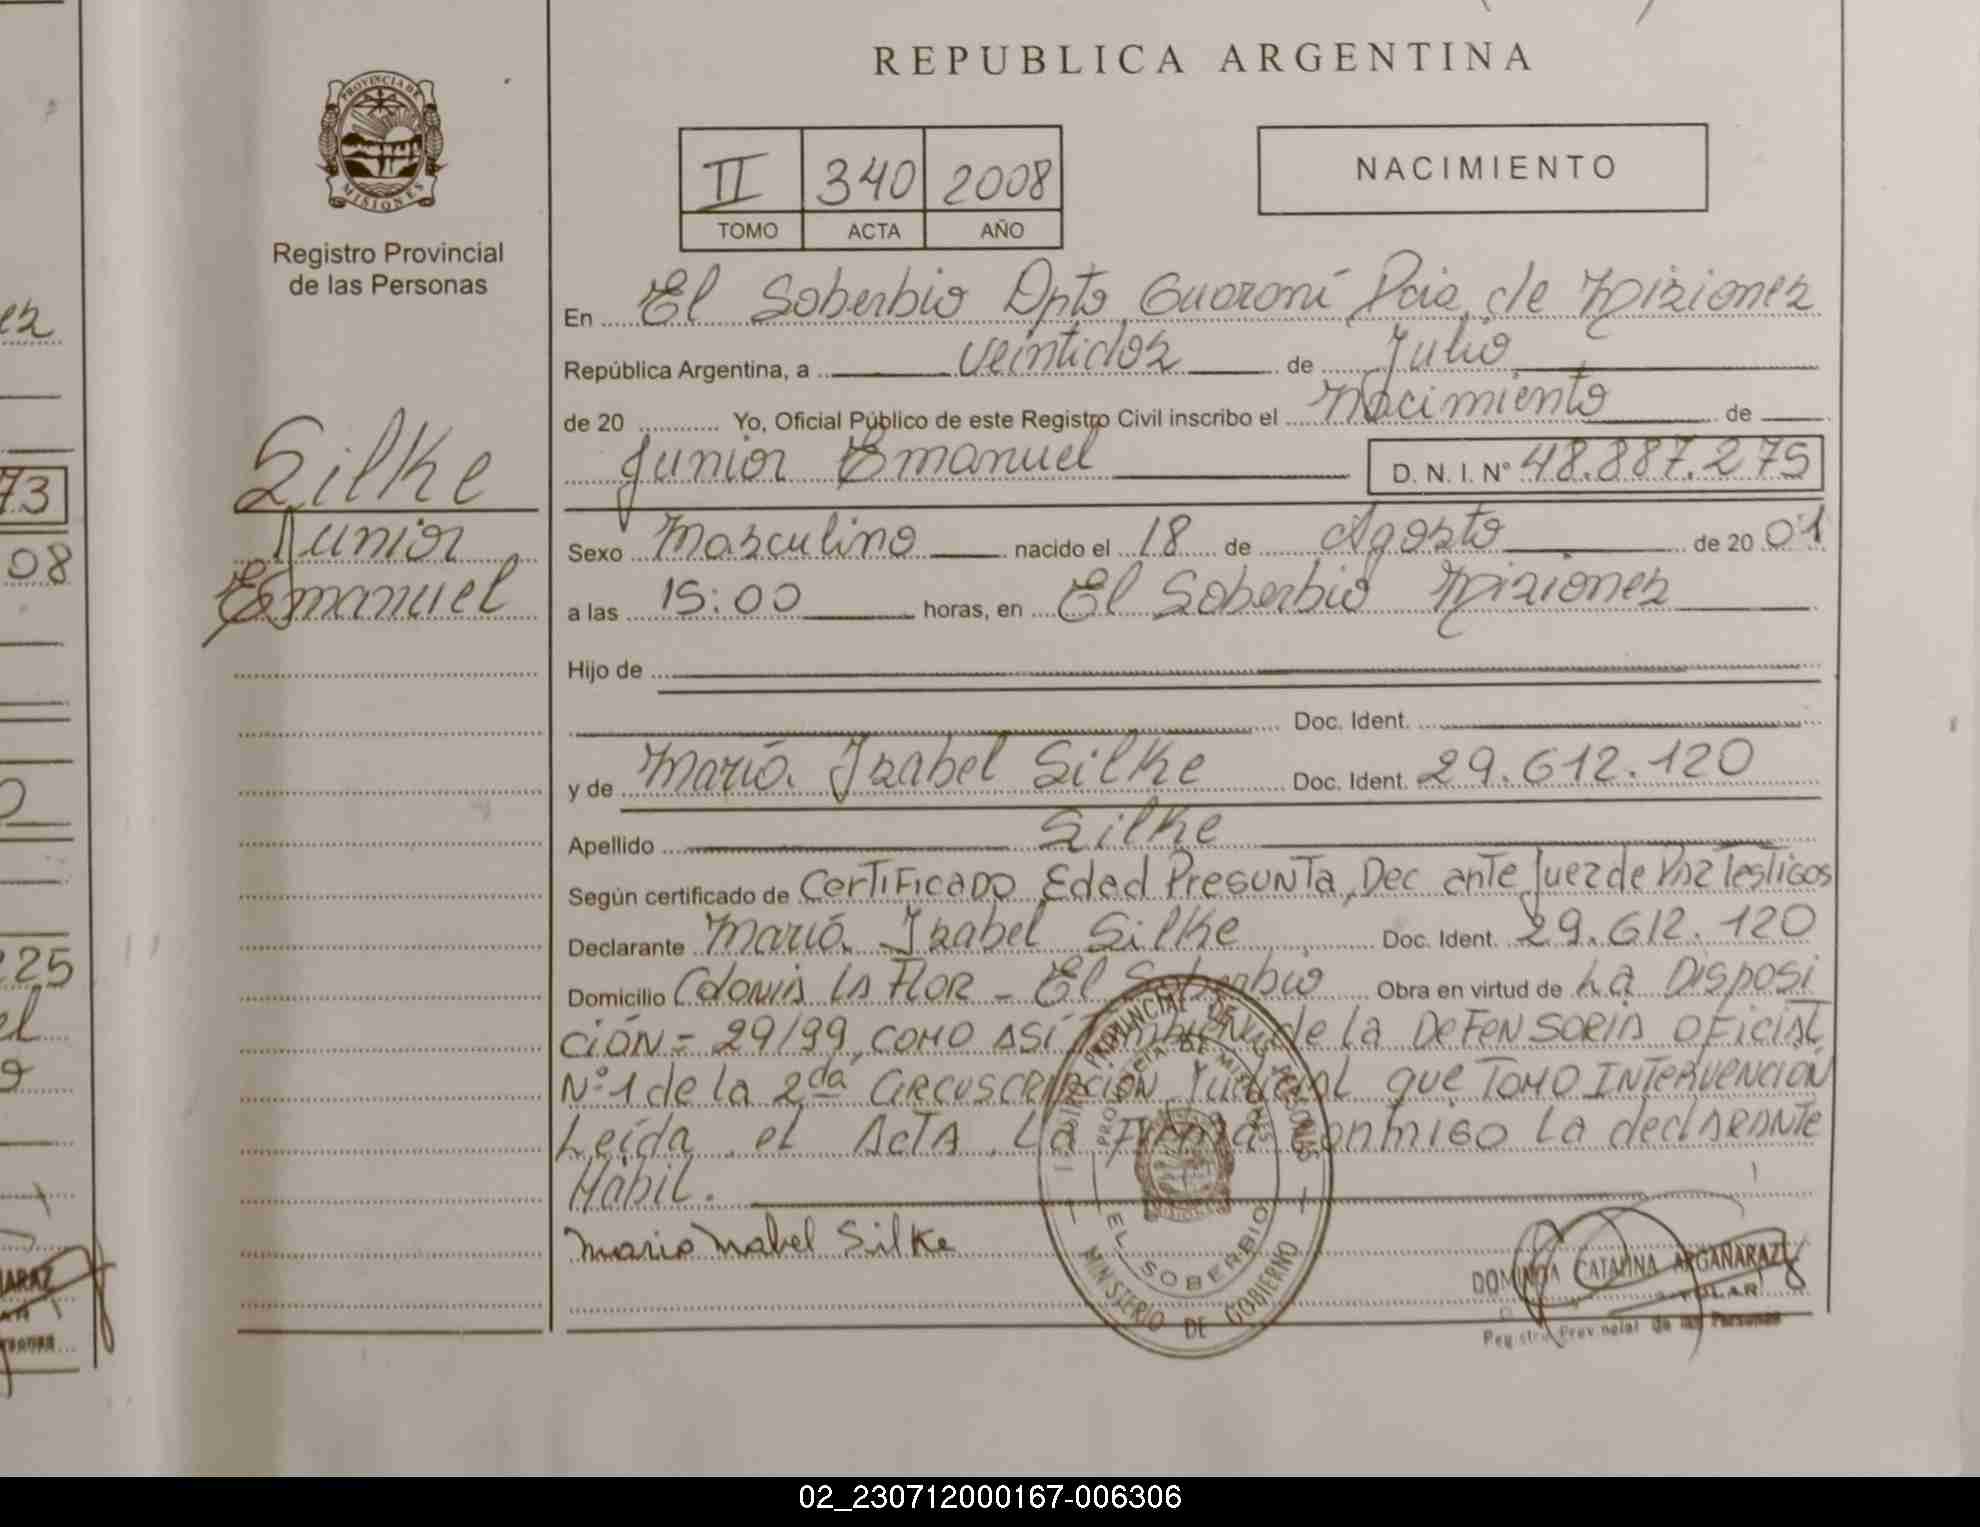 REPUBLICA ARGENTINA
PROVINCIA DE
MISIONES
Registro Provincial
de las Personas
II 340 2008
TOMO ACTA AÑO
NACIMIENTO
En El Soberbio Dpto Guaraní Pcia de Misiones
República Argentina, a veintidos de Julio
de 20 ............ Yo, Oficial Público de este Registro Civil inscribo el Nacimiento de
Junior Emanuel D. N. I. N° 48.887.275
Silke
Junior
Emanuel
Sexo Masculino nacido el 18 de Agosto de 20 01
a las 15:00 horas, en El Soberbio Misiones
Hijo de
Doc. Ident.
y de María Isabel Silke Doc. Ident. 29.612.120
Apellido Silke
Según certificado de Certificado Edad Presunta, Dec ante Juez de Paz Testigos
Declarante María Isabel Silke Doc. Ident. 29.612.120
Domicilio Colonia La Flor - El Soberbio Obra en virtud de La Disposi
ción = 29/99, como así también de la Defensoria Oficial
N°1 de la 2da Circuscripción Judicial que tomo Intervención
Leída el Acta La Firma conmigo La declarante
Hábil.
Maria Isabel Silke
PROVINCIAL DE LAS PERSONAS
PROVINCIA DE MISIONES
EL SOBERBIO
MINISTERIO DE GOBIERNO
DOMINGA CATALINA ARGAÑARAZ
TITULAR
Registro Provincial de las Personas
73
08
225
ARAZ
02_230712000167-006306